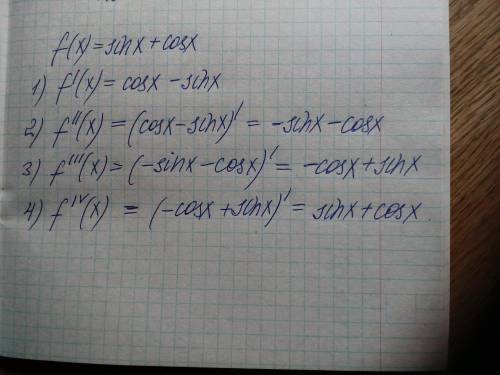 f(x) = sinx + cosx
1) f'(x) = cosx - sinx
2) f''(x) = (cosx - sinx)' = -sinx - cosx
3) f'''(x) = (-sinx - cosx)' = -cosx + sinx
4) f^{IV}(x) = (-cosx + sinx)' = sinx + cosx